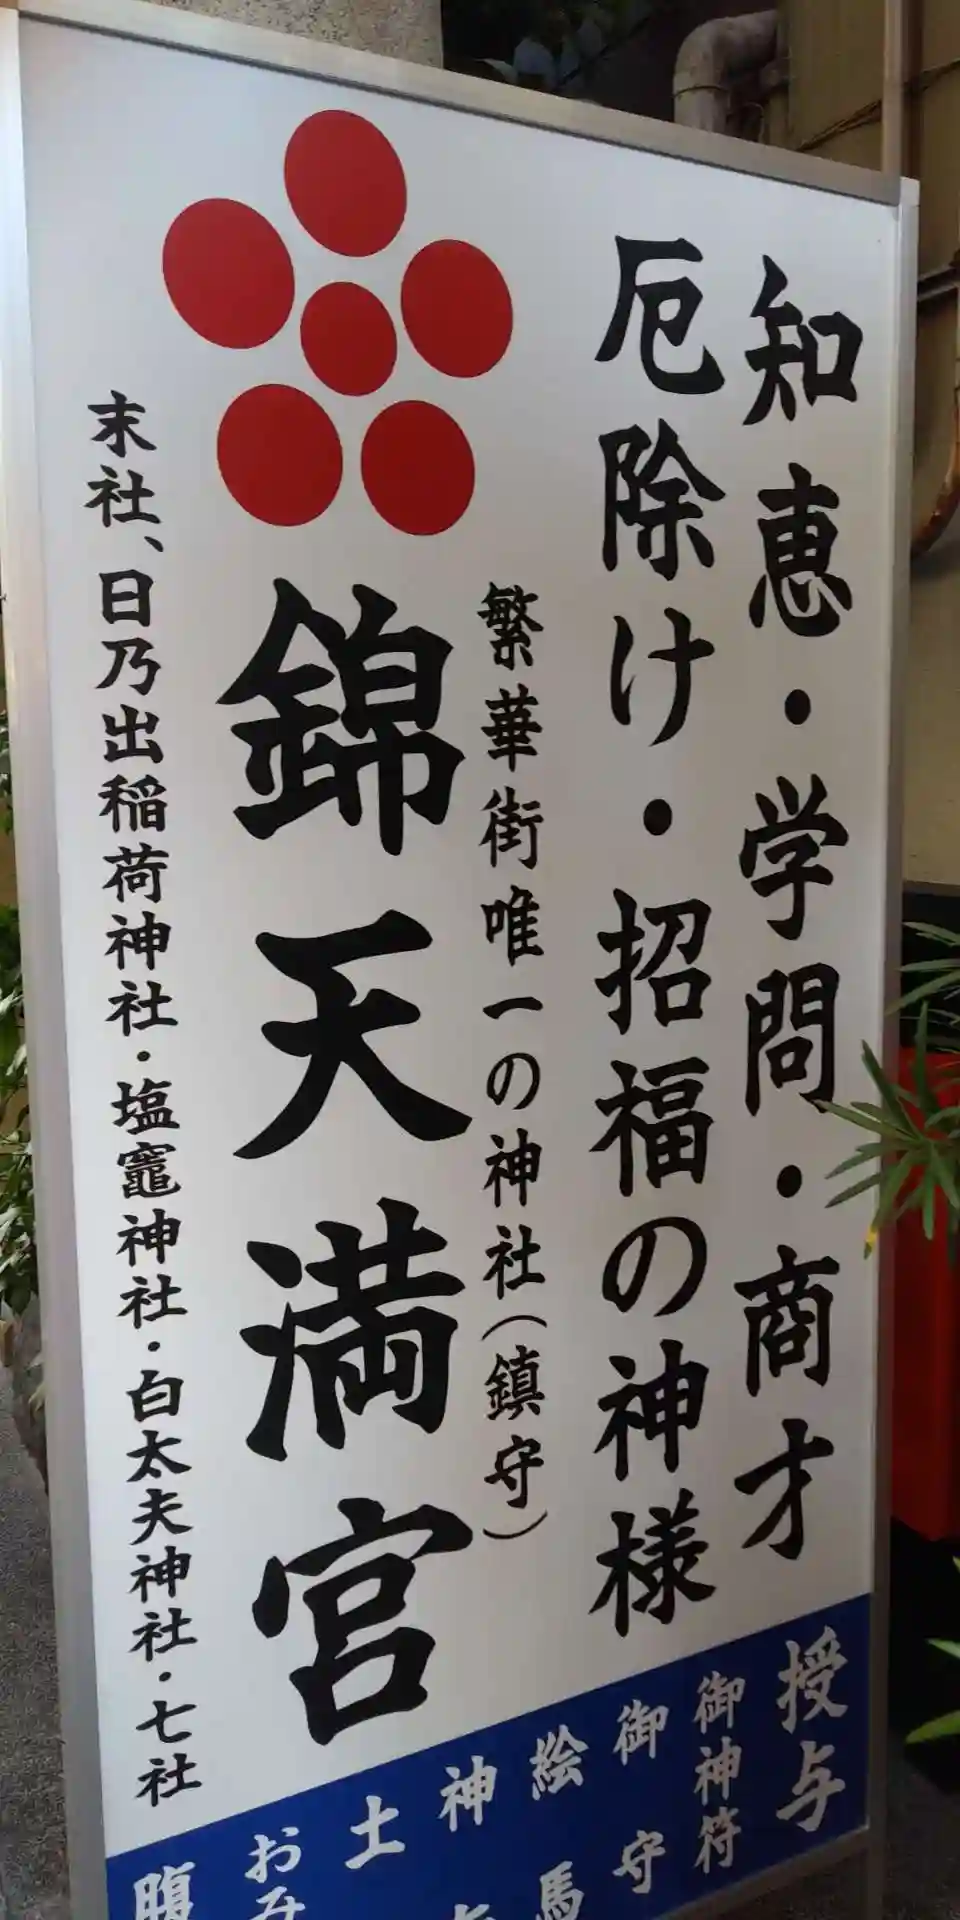 知恵・学問・商才
厄除け・招福の神様
繁華街唯一の神社(鎮守)
錦天満宮
末社、日乃出稲荷神社・塩竈神社・白太夫神社・七社
授与
御神符
御守
絵馬
神
土
おみ
腹